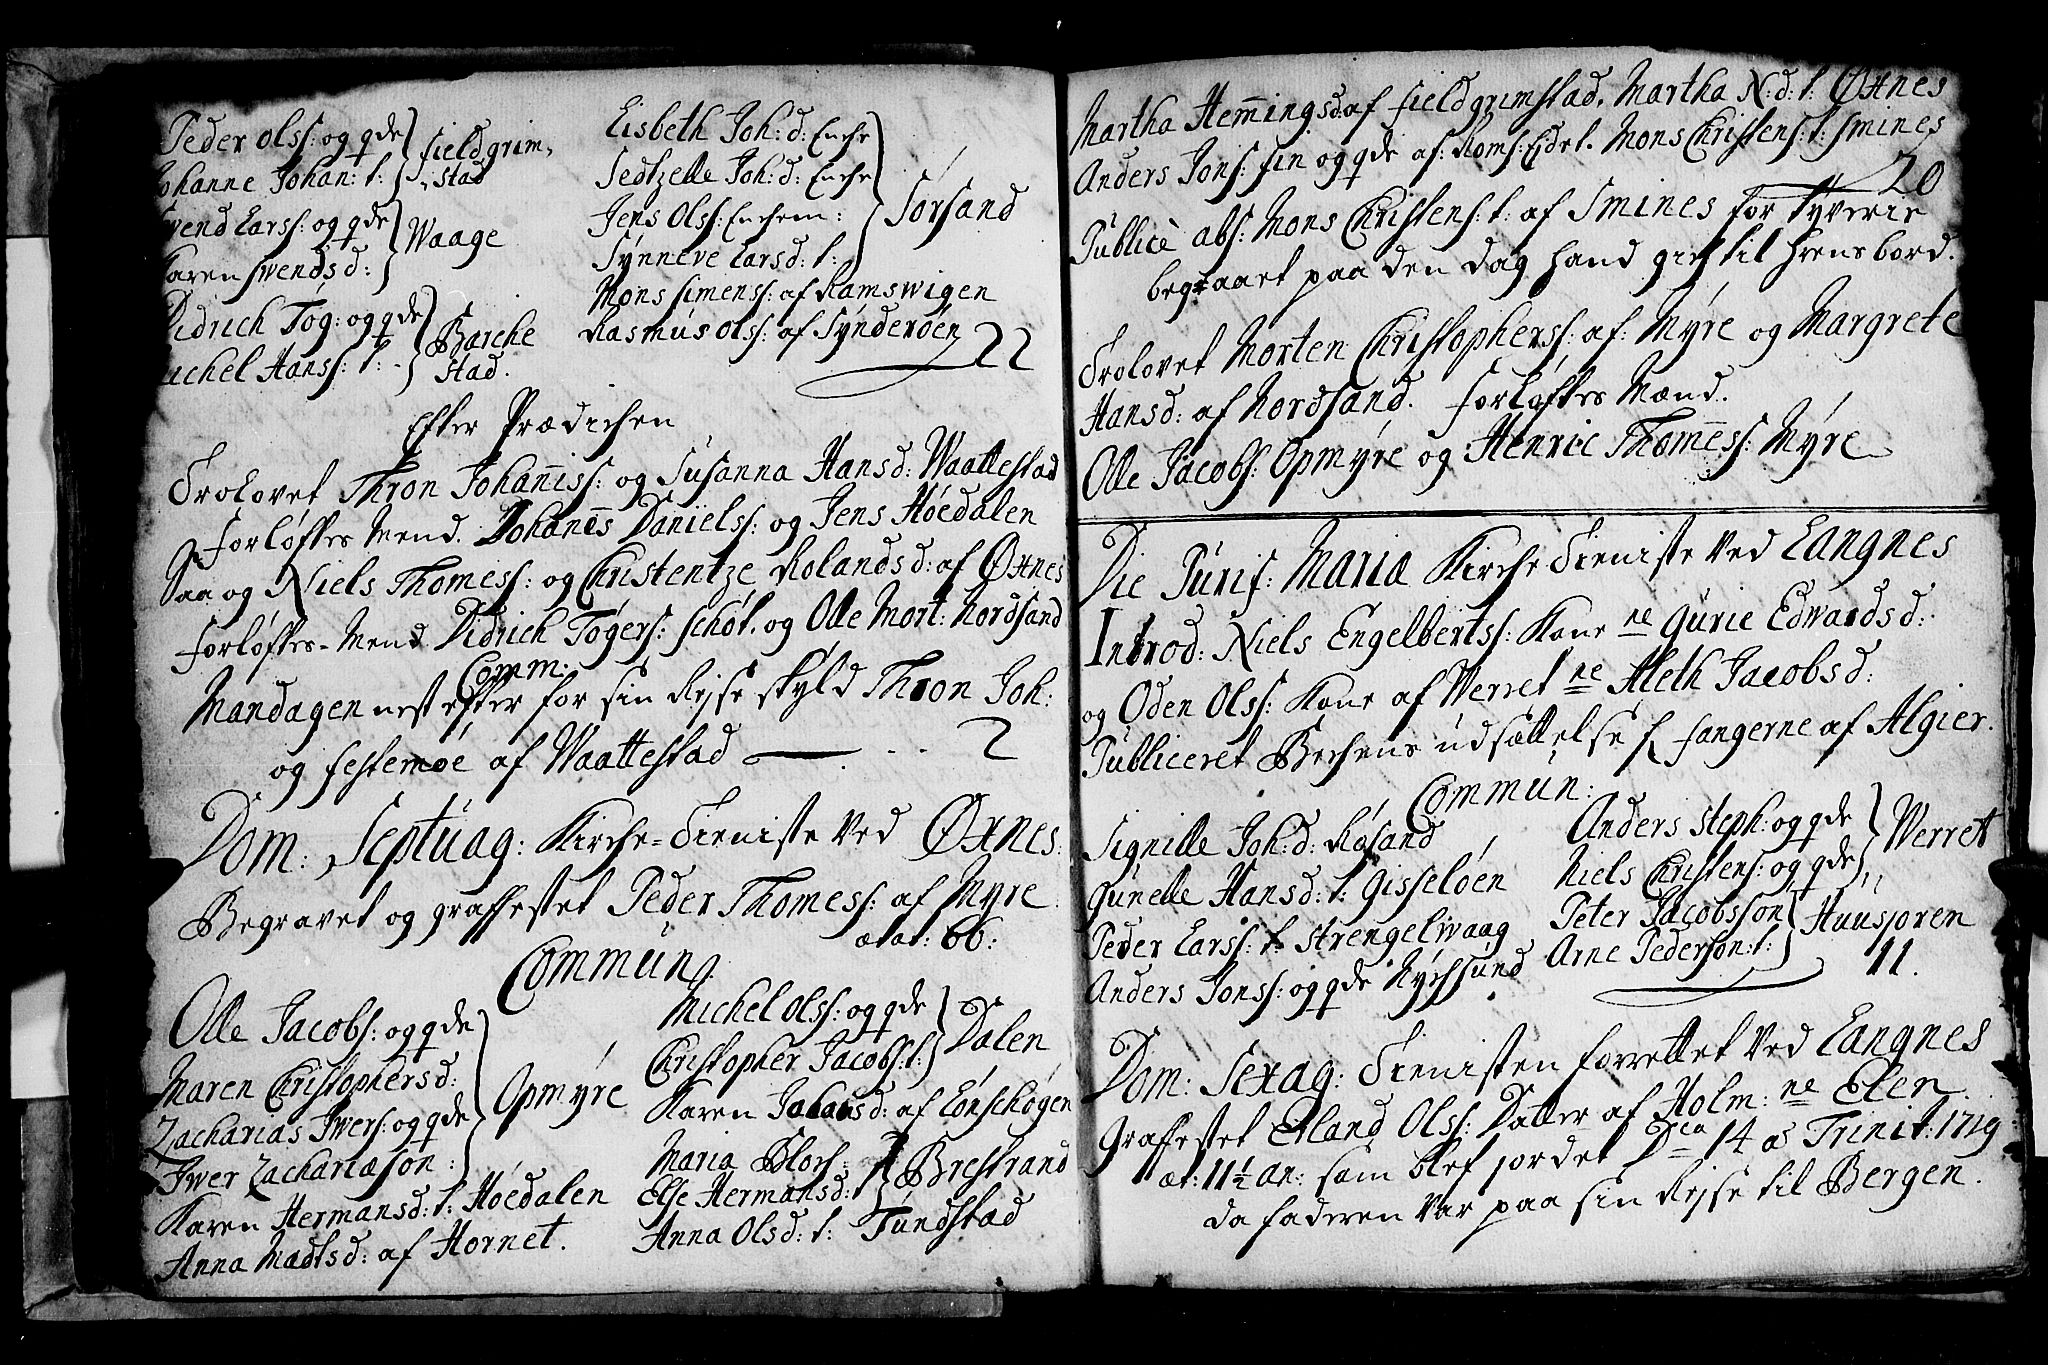 Peder Olss: og qde } Fieldgrim,
Johanne Johan: t: } stad
Swend Larss: og qde } Waage
Karen Swendsd: }
Didrich Tøg: og qde } Barche
Rachel Hanss: t: } stad.
Lisbeth Joh: d: Enche
Sedtzelle Joh: d: Enche
Jens Olss: Enchem: } Sørsand
Synneve Larsd: t:
Mons Simens: af Ramswigen
Rasmus Olss: af Synderøen 22
Efter Prædichen
Trolovet Thron Johannss: og Susanna Hansd: Waattestad
Forløftes Mend. Johans Daniels: og Jens Høedalen
Saa og Niels Thomess: og Christentze Rolandsd: af Øxnes
Forløftes-Mend Didrich Tøgers: Schøt. og Olle Mort: Nordsand
Comm.
Mandagen nest efter for sin Rejse skyld Thron Joh:
og festemøe af Waattestad 2
Dom: Septuag: Kirche-Tieniste Ved Øxnes:
Begravet og graffestet Peder Thomess: af Myre
ætat: 66:
Commun
Olle Jacobs: og qde
Maren Christophersd:
Zacharias Iwers: og qde } Opmyre
Iwer Zachariæson:
Karen Hermansd: t: Høedalen
Anna Madtsd: af Hornet.
Michel Olss: og qde } Dalen
Christopher Jacobss: t: }
Karen Jacobsd: af Lønschøgen
Maria Bloch: } Brestrand
Else Hermansd: t }
Anna Olsd: t: Tundstad
Martha Hemmingsd: af Fieldgrimstad. Martha N: d: t: Øxnes
Anders Jons: Fin og qde af: Roms: Eidet. Mons Christens: t: Smines
20
Publicè abs: Mons Christens: t: af Smines for Tyverie
begaaet paa den dag hand gich til Hrens bord.
Trolovet Morten Christophers: af: Myre og Margrete
Hansd: af Nordsand. Forløftes Mænd.
Olle Jacobs: Opmyre og Henric Thomess: Myre
Die Purif: Mariæ Kirche Tieniste Ved Langnes
Introd: Niels Engelbertss: Kone ne Gurie Edwardsd:
og Oden Olss: Kone af Werret ne Aleth Jacobsd:
Publiceret Bechens udsættelse f fangerne af Algier.
Commun:
Signille Joh: d: Røsand
Gunelle Hansd: t: Gisseløen
Peder Larss: t: Strengelwaag
Anders Jonss: og qde Nychsund
Anders Steph: og qde } Werret
Niels Christens: og qde }
Peter Jacobsson } Huusjoren
Arne Pederson: t: } 11.
Dom: Sexag: Tienisten forrettet Ved Langnes
Graffestet Erland Olss: Datter af Holm: ne Elen
æt: 11½ an: som blef jordet Dca 14 as Trinit: 1719
da faderen Var paa sin Rejse til Bergen.